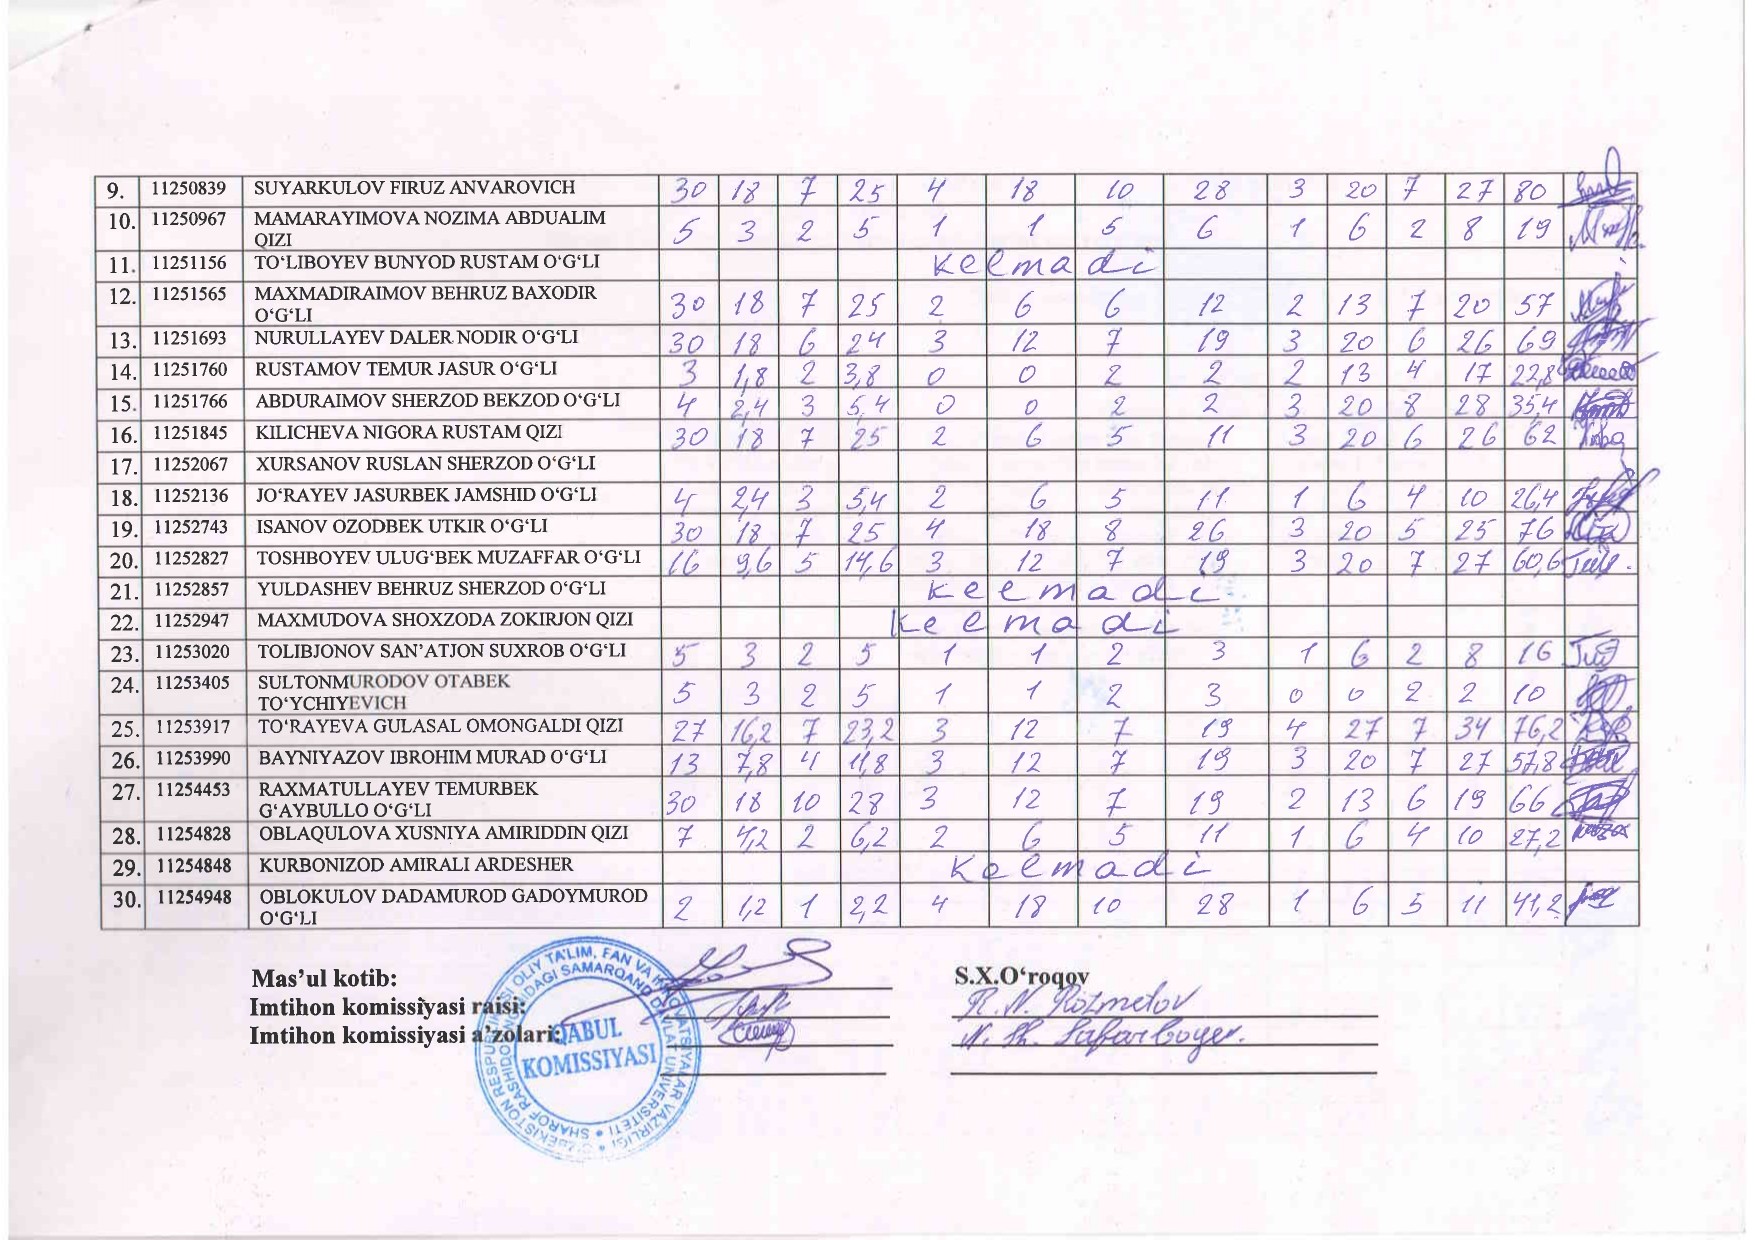 9. 11250839 SUYARKULOV FIRUZ ANVAROVICH 30 18 7 25 4 18 10 28 3 20 7 27 80
10. 11250967 MAMARAYIMOVA NOZIMA ABDUALIM 5 3 2 5 1 1 5 6 1 6 2 8 19
QIZI
11. 11251156 TO‘LIBOYEV BUNYOD RUSTAM O‘G‘LI kelmadi
12. 11251565 MAXMADIRAIMOV BEHRUZ BAXODIR 30 18 7 25 2 6 6 12 2 13 7 20 57
O‘G‘LI
13. 11251693 NURULLAYEV DALER NODIR O‘G‘LI 30 18 6 24 3 12 7 19 3 20 6 26 69
14. 11251760 RUSTAMOV TEMUR JASUR O‘G‘LI 3 1,8 2 3,8 0 0 2 2 2 13 4 17 22,8
15. 11251766 ABDURAIMOV SHERZOD BEKZOD O‘G‘LI 4 2,4 3 5,4 0 0 2 2 3 20 8 28 35,4
16. 11251845 KILICHEVA NIGORA RUSTAM QIZI 30 18 7 25 2 6 5 11 3 20 6 26 62
17. 11252067 XURSANOV RUSLAN SHERZOD O‘G‘LI
18. 11252136 JO‘RAYEV JASURBEK JAMSHID O‘G‘LI 4 2,4 3 5,4 2 6 5 11 1 6 4 10 26,4
19. 11252743 ISANOV OZODBEK UTKIR O‘G‘LI 30 18 7 25 4 18 8 26 3 20 5 25 76
20. 11252827 TOSHBOYEV ULUG‘BEK MUZAFFAR O‘G‘LI 16 9,6 5 14,6 3 12 7 19 3 20 7 27 60,6
21. 11252857 YULDASHEV BEHRUZ SHERZOD O‘G‘LI kelmadi
22. 11252947 MAXMUDOVA SHOXZODA ZOKIRJON QIZI kelmadi
23. 11253020 TOLIBJONOV SAN’ATJON SUXROB O‘G‘LI 5 3 2 5 1 1 2 3 1 6 2 8 16
24. 11253405 SULTONMURODOV OTABEK 5 3 2 5 1 1 2 3 0 0 2 2 10
TO‘YCHIYEVICH
25. 11253917 TO‘RAYEVA GULASAL OMONGALDI QIZI 27 16,2 7 23,2 3 12 7 19 4 27 7 34 76,2
26. 11253990 BAYNIYAZOV IBROHIM MURAD O‘G‘LI 13 7,8 4 11,8 3 12 7 19 3 20 7 27 57,8
27. 11254453 RAXMATULLAYEV TEMURBEK 30 18 10 28 3 12 7 19 2 13 6 19 66
G‘AYBULLO O‘G‘LI
28. 11254828 OBLAQULOVA XUSNIYA AMIRIDDIN QIZI 7 4,2 2 6,2 2 6 5 11 1 6 4 10 27,2
29. 11254848 KURBONIZOD AMIRALI ARDESHER kelmadi
30. 11254948 OBLOKULOV DADAMUROD GADOYMUROD 2 1,2 1 2,2 4 18 10 28 1 6 5 11 41,2
O‘G‘LI
Mas’ul kotib: S.X.O‘roqov
Imtihon komissiyasi raisi: R. N. Rozmetov
Imtihon komissiyasi a’zolari: N. Sh. Safarboyev.
QABUL
KOMISSIYASI